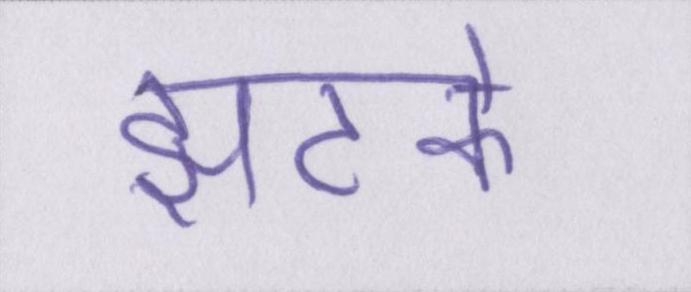 झटके